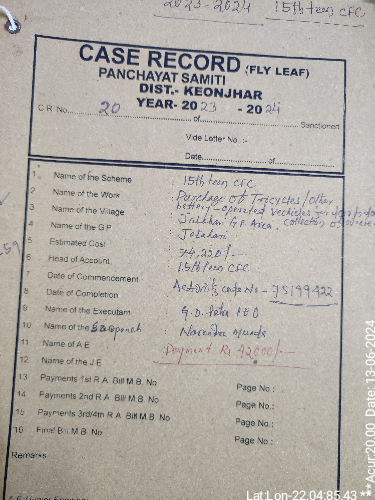 2023-2024 15th teen CFC
CASE RECORD (FLY LEAF)
PANCHAYAT SAMITI
DIST.- KEONJHAR
YEAR- 2023 - 2024
C.R No. 20 of Sanctioned
Vide Letter No :-
Date
1 Name of the Scheme : 15th teen CFC
2 Name of the Work : Purchage of Tricycles/other
battery operated vechicles for
3 Name of the Village : G.P. Area, collection of
4 Name of the G.P :
5 Estimated Cost : 74,220/-
6 Head of Account : 15th teen CFC
7 Date of Commencement :
8 Date of Completion Activity code No - 75199422
9 Name of the Executant : G.D. Patra PEO
10 Name of the Sarpanch : Narendra Munda
11 Name of A E Payment Rs 42000/-
12 Name of the J E
13 Payments 1st R.A. Bill M.B. No Page No :
14 Payments 2nd R.A. Bill M.B. No Page No :
15 Payments 3rd/4th R.A. Bill M.B. No Page No :
16 Final Bill M.B. No Page No :
Remarks
Lat:Lon-22.04:85.43 **Acur:20.00 Date: 13-06-2024